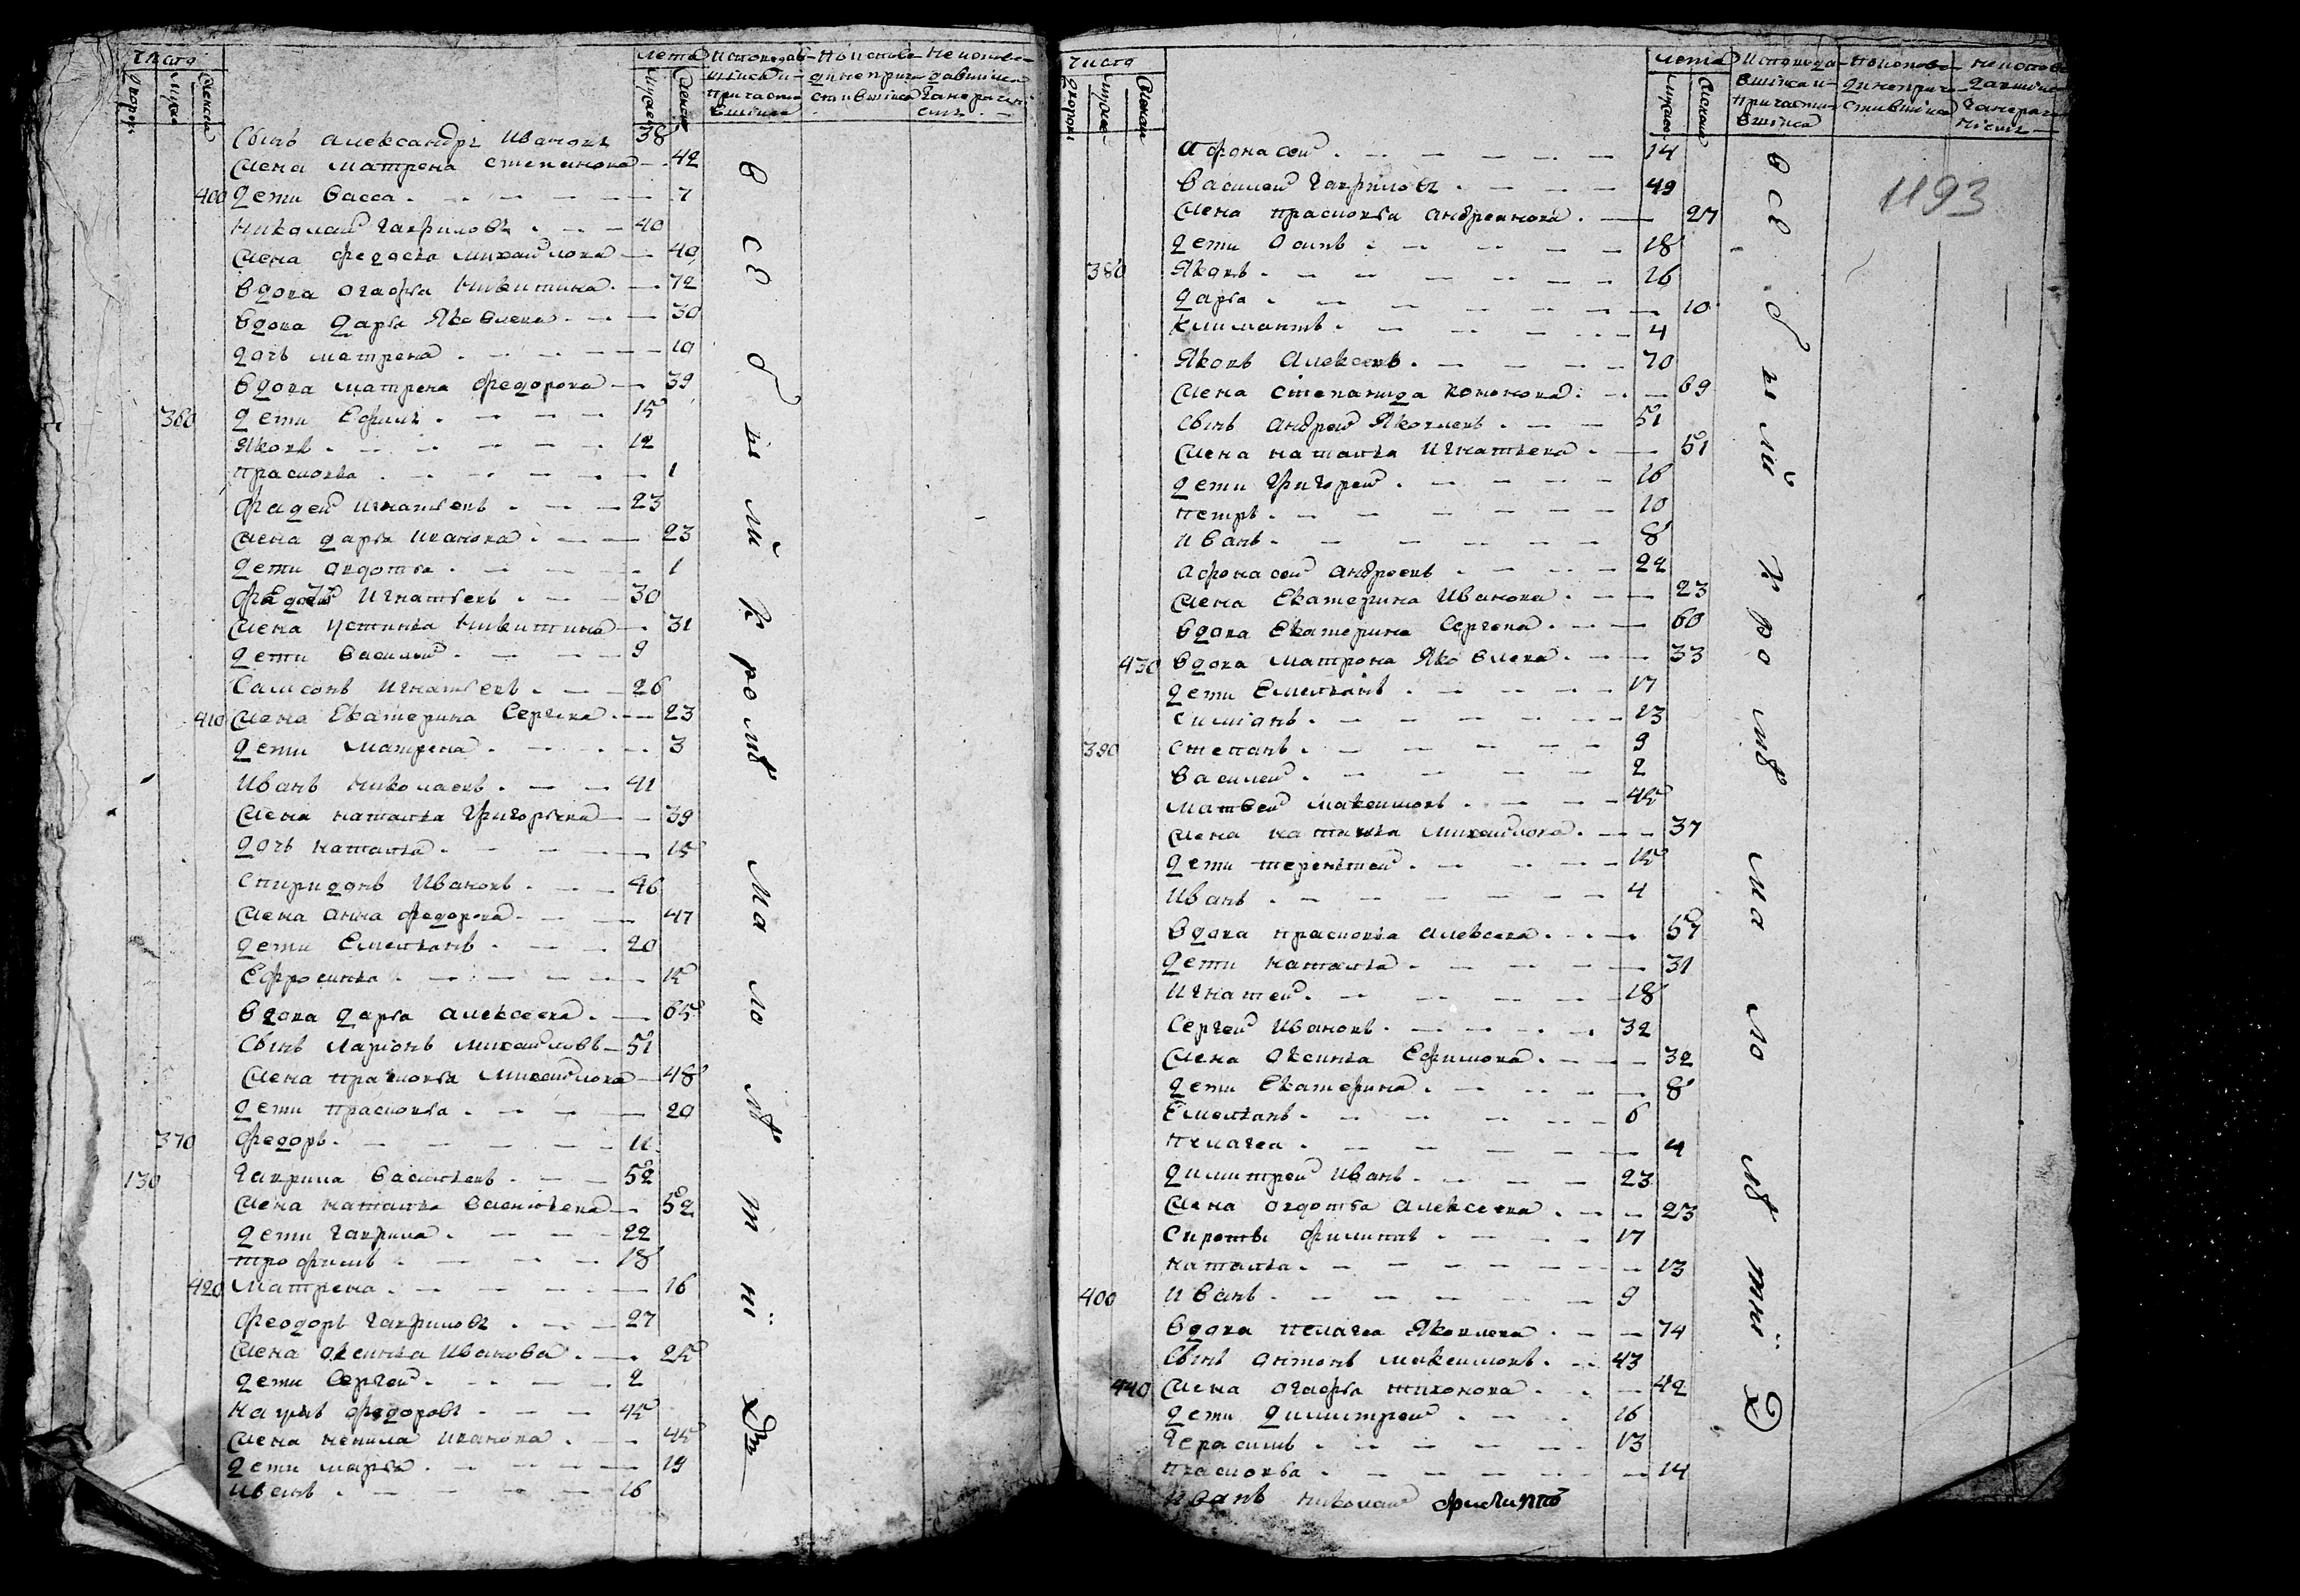 Число
дворовъ
мужес
женска
лета
мужес
женска
исповедав-
шихся и
причасти
вшихся
но испове-
дни не прича
стившихся
не испове-
давшихся
Сынъ Александръ Ивановъ 38
Жена Матрена Степанова 42
400 дети Васса 7
Николай Гавриловъ 40
Жена Федосья Михайлова 40
Вдова Огафья Никитина 72
Вдова Дарья Яковлева 30
дочь Матрена 10
Вдова Матрена Федорова 39
360 дети Ефимъ 15
Яковъ 12
Прасковья 1
Фадей Игнатьевъ 23
Жена Дарья Иванова 23
дети Авдотья 1
Игнатьевъ 30
Жена Устинья Никитина 31
дети Василей 9
Самсонъ Игнатьевъ 26
410 Жена Екатерина Сергеева 23
дети Матрена 3
Иванъ Николаевъ 41
Жена Наталья Григорьева 39
дочь Наталья 15
Спиридонъ Ивановъ 46
Жена Анна Федорова 47
дети Емельянъ 20
Ефросинья 15
Вдова Дарья Алексеева 65
Сынъ Ларионъ Михайловъ 51
Жена Прасковья Михайлова 48
дети Прасковья 20
370 Федоръ 11
130 Гаврила Васильевъ 52
Жена Наталья Васильева 52
дети Гаврила 22
Трофимъ 18
420 Матрена 16
Феодоръ Гавриловъ 27
Жена Оксинья Иванова 25
дети Сергей 2
Наумъ Федоровъ 45
Жена Ненила Иванова 45
дети Марья 19
Иванъ 16
все были кромѣ малолѣтнiхъ
Число
дворовъ
мужес
женска
лета
мужес
женска
исповеда-
вшихся и
причасти
вшихся
но испове-
дни не прича
стившихся
не испове
давшихся
1193
Афонасей 14
Василей Гавриловъ 49
Жена Прасковья Андреянова 27
дети Осипъ 18
380 Яковъ 16
Дарья 10
Климантъ 4
Яковъ Алексеевъ 70
Жена Степанида Кононова 69
Сынъ Андрей Яковлевъ 51
Жена Наталья Игнатьева 51
дети Григорей 16
Петръ 10
Иванъ 8
Афонасей Андреевъ 22
Жена Екатерина Иванова 23
Вдова Екатерина Сергеева 60
430 Вдова Матрона Яковлева 33
дети Емельянъ 17
Симіонъ 13
390 Степанъ 9
Василей 2
Матвей Максимовъ 45
Жена Наталья Михайлова 37
дети Терентей 15
Иванъ 4
Вдова Прасковья Алексеева 57
дети Наталья 31
Игнатей 18
Сергей Ивановъ 32
Жена Оксинья Ефимова 32
дети Екатерина 8
Емельянъ 6
Пелагея 4
Димитрей Иванъ 23
Жена Авдотья Алексеева 23
Сироты Филипъ 17
Наталья 13
400 Иванъ 9
Вдова Пелагея Яковлева 74
Сынъ Антонъ Максимовъ 43
440 Жена Огафья Тихонова 42
дети Димитрей 16
Герасимъ 13
Прасковья 14
Иванъ Николай Филиппъ
все были кромѣ малолѣтнiхъ